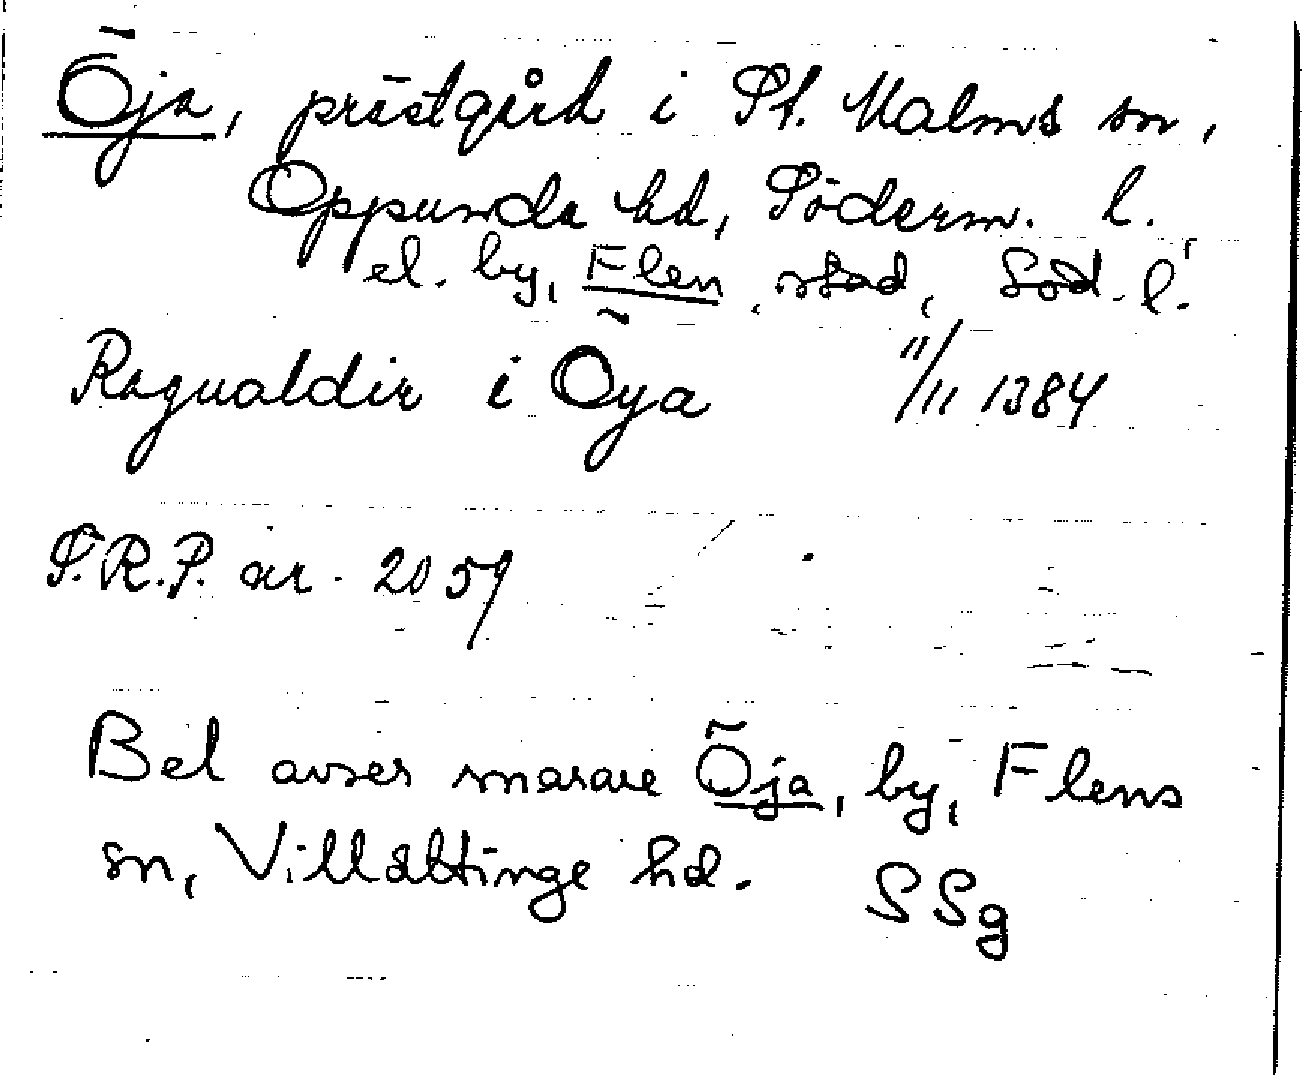 Öja, prästgård i St. Malms sn,
Oppunda hd, Söderm. l.
el. by, Flen, stad, Söd. l.
Ragualdir i Öya 11/11 1384
S.R.P. nr. 2059
Bel avser snarare Öja, by, Flens
sn, Villåttinge hd. SSg